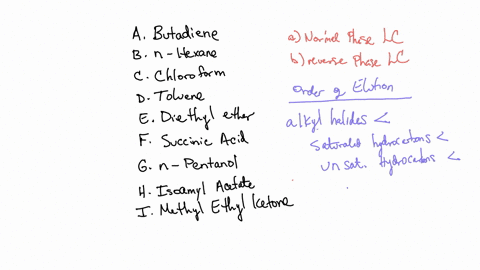 A. Butadiene
B. n-Hexane
C. Chloroform
D. Toluene
E. Diethyl ether
F. Succinic Acid
G. n-Pentanol
H. Isoamyl Acetate
I. Methyl Ethyl Ketone
a) Normal Phase LC
b) reverse Phase LC
Order of Elution
alkyl halides <
Saturated hydrocarbons <
unsat. Hydrocarbons <